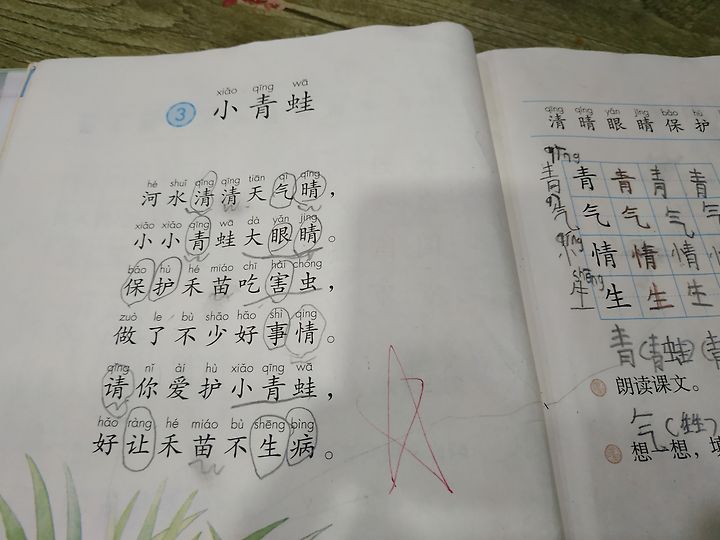 xiǎo qīng wā
3 小青蛙
hé shuǐ qīng qīng tiān qì qíng
河水清清天气晴，
xiǎo xiǎo qīng wā dà yǎn jīng
小小青蛙大眼睛。
bǎo hù hé miáo chī hài chóng
保护禾苗吃害虫，
zuò le bù shǎo hǎo shì qing
做了不少好事情。
qǐng nǐ ài hù xiǎo qīng wā
请你爱护小青蛙，
hǎo ràng hé miáo bù shēng bìng
好让禾苗不生病。
qīng qíng yǎn jīng bǎo hù
清晴眼睛保护
qīng
青青青青青
qì
气气气气气
qíng
情情情情
shēng
生生生生
青(青蛙)青
朗读课文。
气
想一想，填